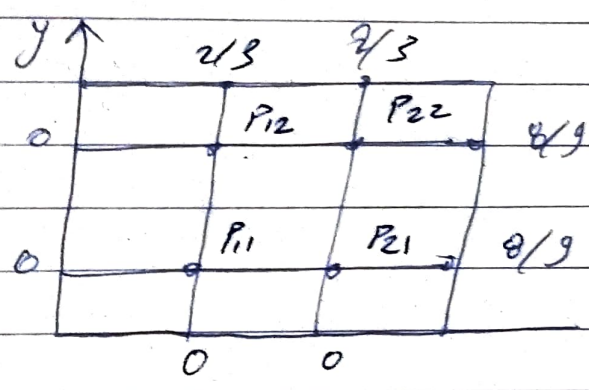 y 2/3 2/3
P12 P22
0 8/9
P11 P21
0 8/9
0 0